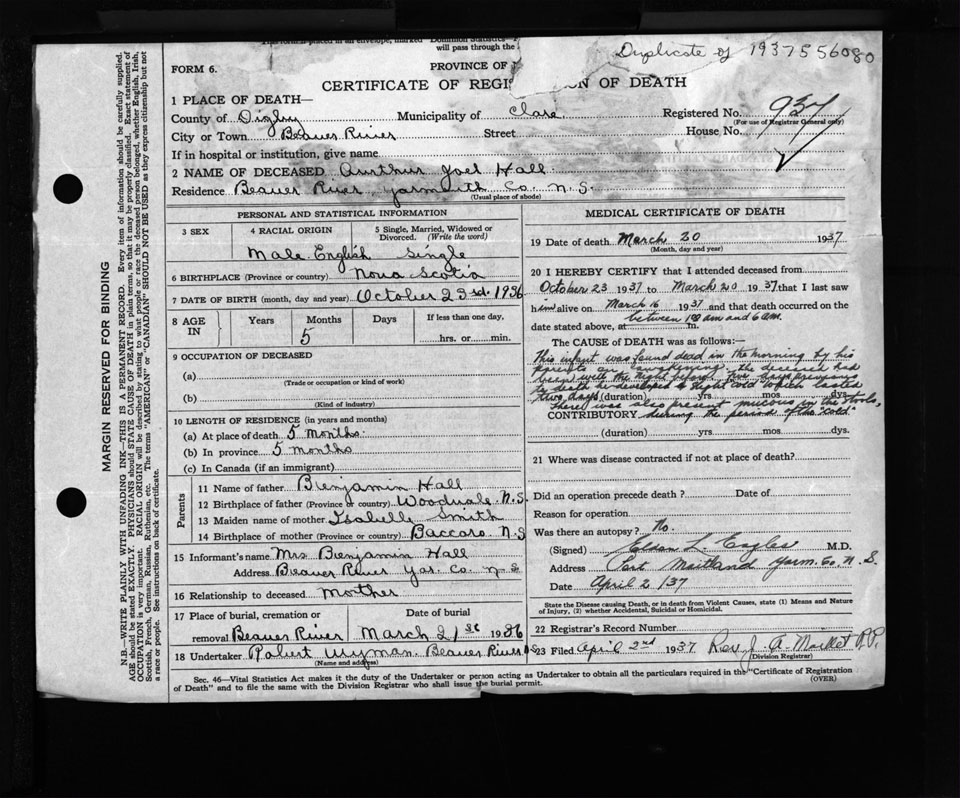 will pass through the
Duplicate of 1937556080
FORM 6.
PROVINCE OF
CERTIFICATE OF REGIS ON OF DEATH
1 PLACE OF DEATH—
County of Digby Municipality of Clare Registered No. 937
(For use of Registrar General only)
City or Town Beaver River Street House No.
If in hospital or institution, give name
2 NAME OF DECEASED Aurthur Joel Hall
Residence Beaver River Yarmouth Co. N.S.
(Usual place of abode)
PERSONAL AND STATISTICAL INFORMATION
3 SEX 4 RACIAL ORIGIN 5 Single, Married, Widowed or Divorced. (Write the word)
Male English Single
6 BIRTHPLACE (Province or country) Nova Scotia
7 DATE OF BIRTH (month, day and year) October 23rd. 1936
8 AGE IN Years Months Days If less than one day,
5 hrs. or min.
9 OCCUPATION OF DECEASED
(a)
(Trade or occupation or kind of work)
(b)
(Kind of industry)
10 LENGTH OF RESIDENCE (in years and months)
(a) At place of death 5 Months.
(b) In province 5 months
(c) In Canada (if an immigrant)
Parents
11 Name of father Bienjamin Hall
12 Birthplace of father (Province or country) Woodvale N.S.
13 Maiden name of mother Isabelle Smith
14 Birthplace of mother (Province or country) Baccaro. N.S
15 Informant's name Mrs Bienjamin Hall
Address Beaver River Yar. Co. N S
16 Relationship to deceased Morther
17 Place of burial, cremation or removal Date of burial
Beaver River March 21st 1936
18 Undertaker Robert Wyman. Beaver River N S
(Name and address)
MEDICAL CERTIFICATE OF DEATH
19 Date of death March 20 1937
(Month, day and year)
20 I HEREBY CERTIFY that I attended deceased from
October 23 1937 to March 20 1937 that I last saw
him alive on March 16 1937 and that death occurred on the
between am and 6 am.
date stated above, at m.
The CAUSE of DEATH was as follows:—
This infant was found dead in the morning by his
parents on awakening. the deceased had
been well the night before. Two days previous
to death he developed a slight cold which lasted
two days (duration) yrs mos dys.
There was also present mucous in the stools,
CONTRIBUTORY during the period of the "cold"
(duration) yrs mos dys.
21 Where was disease contracted if not at place of death?
Did an operation precede death? Date of
Reason for operation
Was there an autopsy? No.
(Signed) L. Eagles M.D.
Address Port Maitland Yarm. Co. N. S.
Date April 2 /37
State the Disease causing Death, or in death from Violent Causes, state (1) Means and Nature
of Injury, (2) whether Accidental, Suicidal or Homicidal.
22 Registrar's Record Number
23 Filed April 2nd 1937 Rev. J. A. P.P.
Division Registrar
Sec. 46—Vital Statistics Act makes it the duty of the Undertaker or person acting as Undertaker to obtain all the particulars required in the "Certificate of Registration
of Death" and to file the same with the Division Registrar who shall issue the burial permit.
(OVER)
MARGIN RESERVED FOR BINDING
N.B.—WRITE PLAINLY WITH UNFADING INK—THIS IS A PERMANENT RECORD. Every item of information should be carefully supplied.
AGE should be stated EXACTLY. PHYSICIANS should STATE CAUSE OF DEATH in plain terms, so that it may be properly classified. Exact statement of
OCCUPATION is very important. RACIAL ORIGIN will be described by stating to what people or race the deceased person belonged, whether English, Irish,
Scottish, French, German, Russian, Ruthenian, etc. The terms "AMERICAN" or "CANADIAN" SHOULD NOT BE USED as they express citizenship but not
a race or people. See instructions on back of certificate.